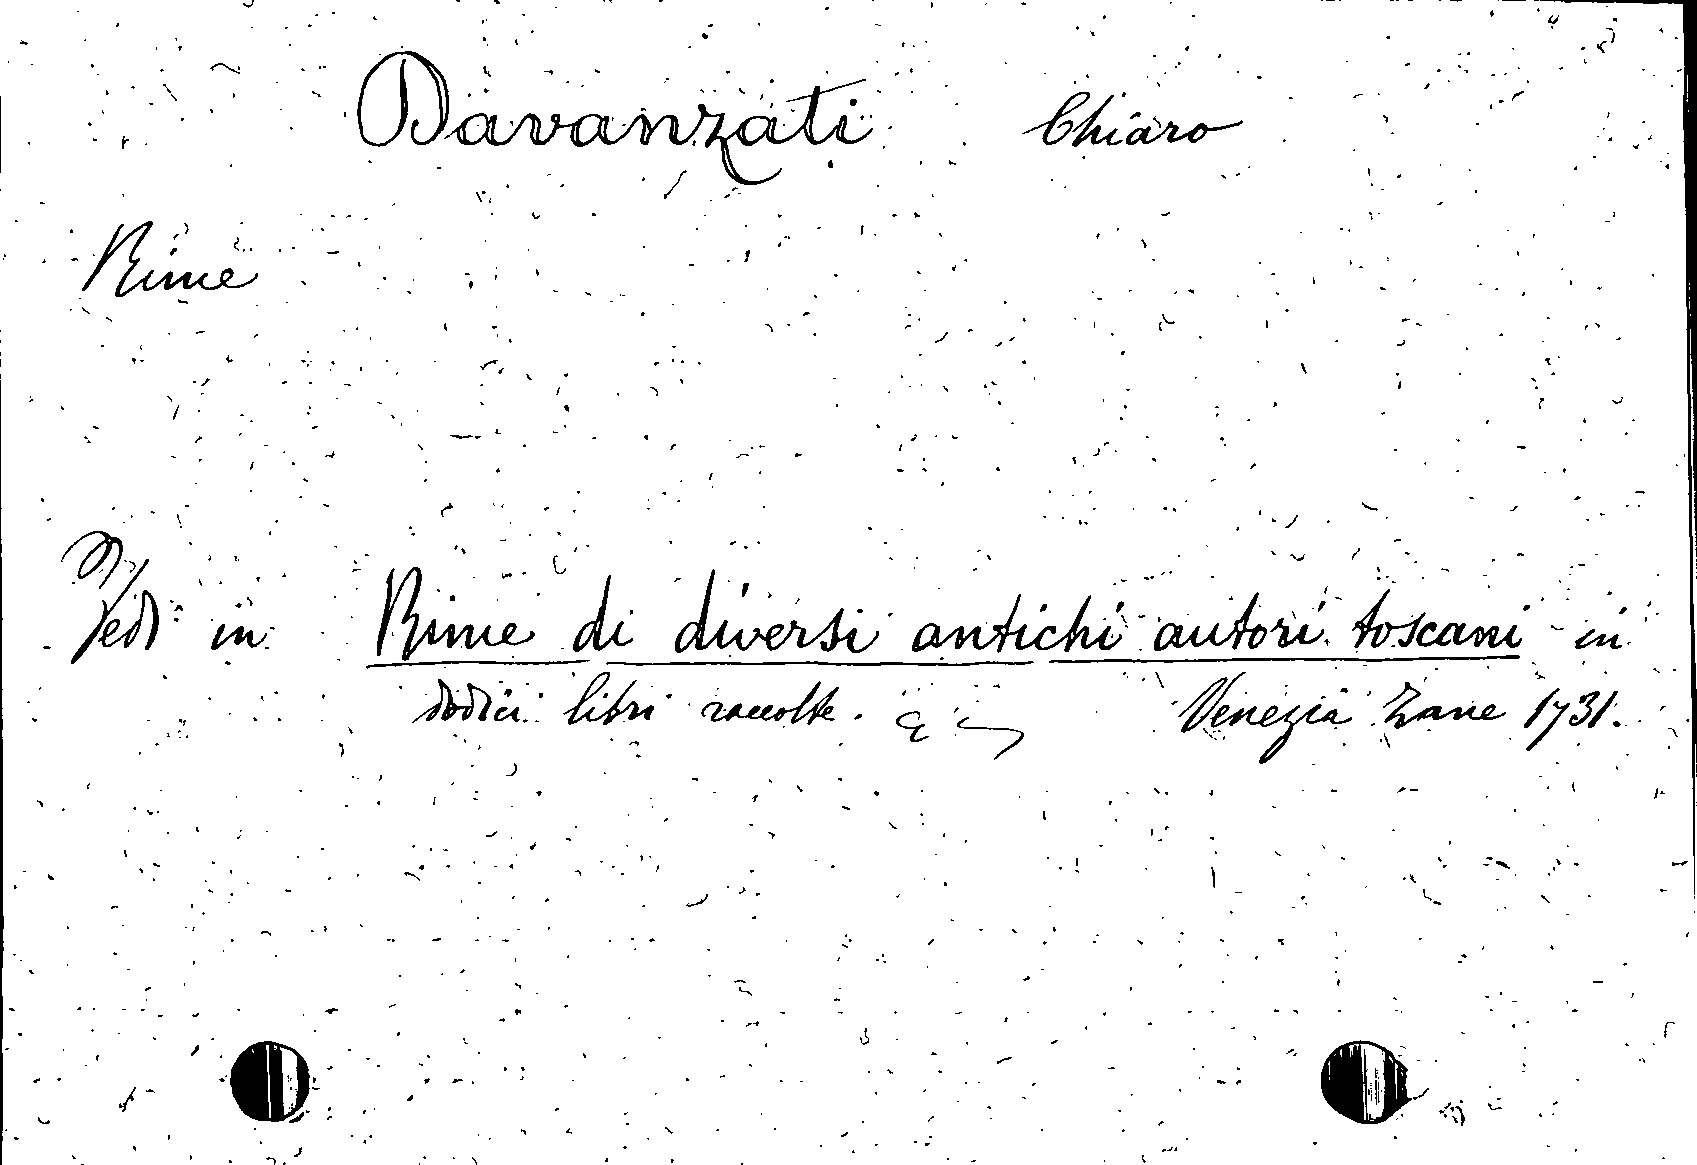 Davanzati Chiaro
Rime
Vedi in Rime di diversi antichi autori toscani in
dodici libri raccolte. Venezia Zane 1731.